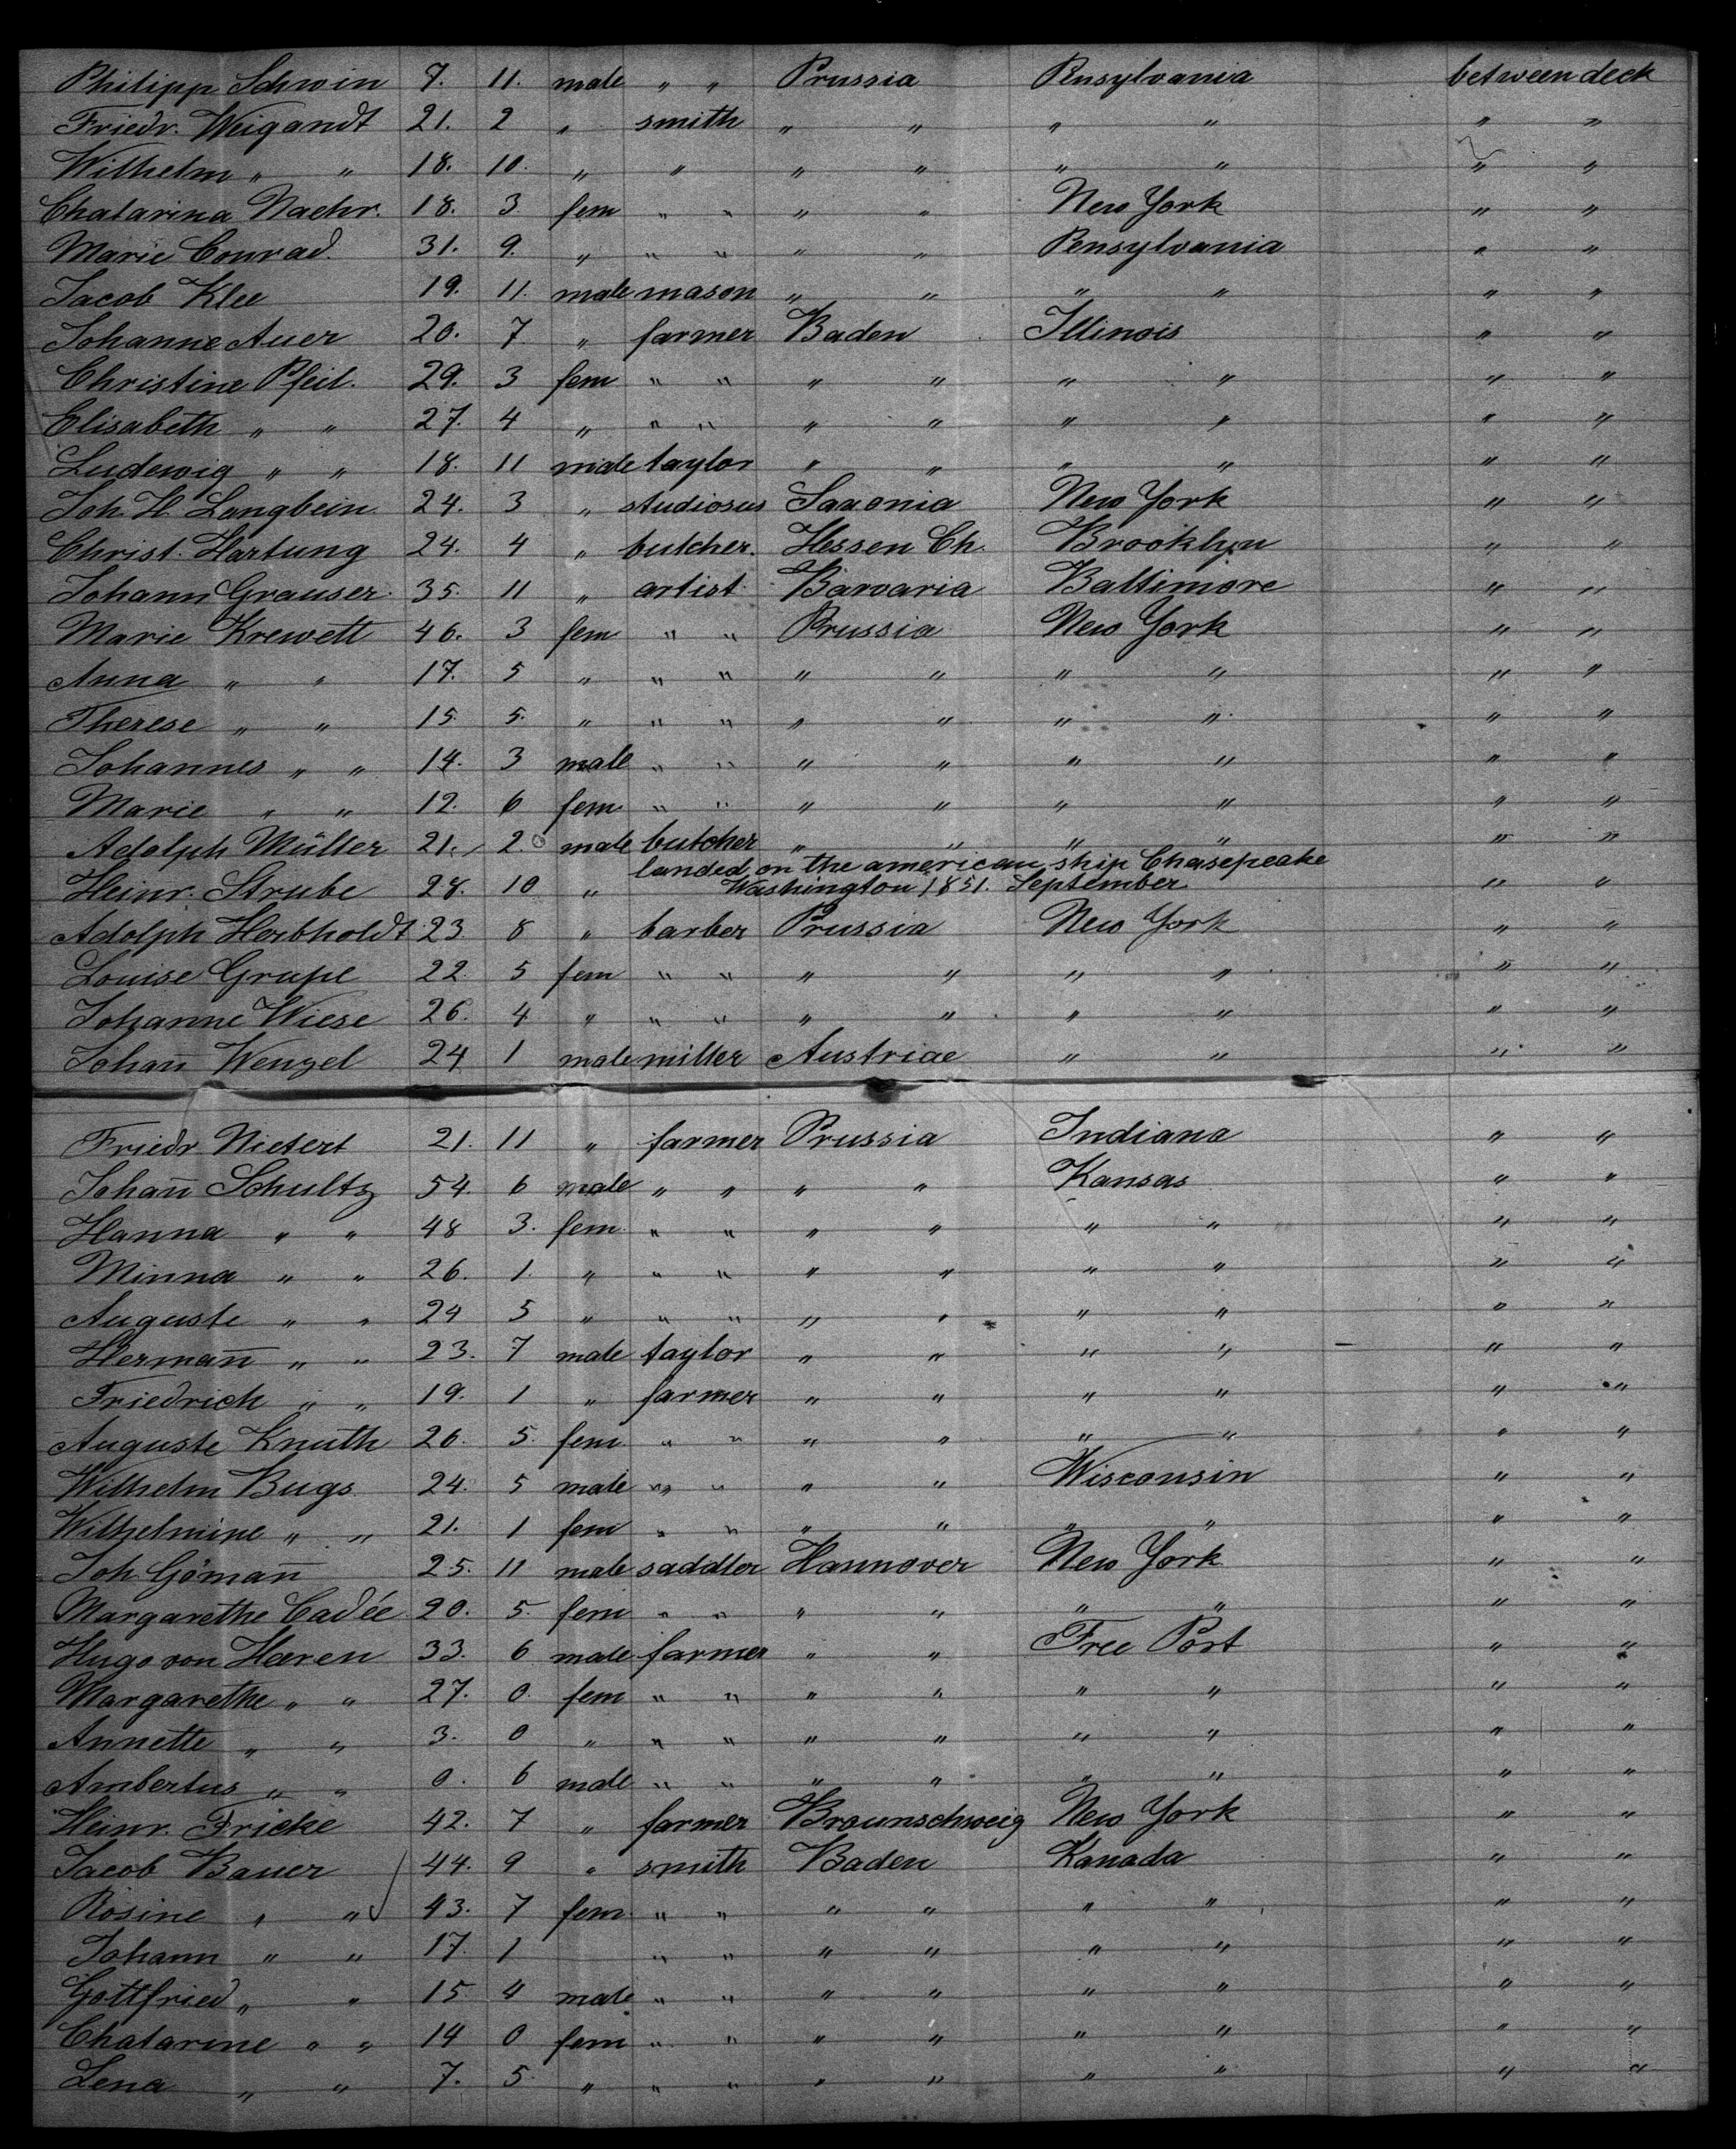 Philipp Schwin 7. 11. male " " Prussia Pensylvania between deck
Friedr. Weigandt 21. 2 " smith " " " " " "
Wilhelm " " 18. 10. " " " " " " " "
Chatarina Nachr. 18. 3 fem " " " " New York " "
Marie Conrad. 31. 9. " " " " " Pensylvania " "
Jacob Klee 19. 11. male mason " " " " " "
Johanne Auer 20. 7 " farmer Baden Illinois " "
Christine Pfeil. 29. 3 fem " " " " " " " "
Elisabeth " " 27. 4 " " " " " " " " "
Ludewig " " 18. 11 male taylor " " " " " "
Joh. H. Langbein 24. 3 " studiosus Saxonia New York " "
Christ. Hartung 24. 4 " butcher. Hessen Ch. Brooklyn " "
Johann Grauser. 35. 11 " artist Barvaria Baltimore " "
Marie Krewett 46. 3 fem " " Prussia New York " "
Anna " " 17. 5 " " " " " " " " "
Therese " " 15. 5. " " " " " " " " "
Johannes " " 14. 3 male " " " " " " " "
Marie " " 12. 6 fem " " " " " " " "
Adolph Müller 21. 2. male butcher " " " " " "
landed on the american ship Chasepeake
Heinr. Strube 28. 10 " Washington 1851. September " "
Adolph Herbholdt 23 8 " barber Prussia New York " "
Louise Grupe 22. 5 fem " " " " " " " "
Johanne Wiese 26. 4 " " " " " " " " "
Johan̄ Wenzel 24 1 male miller Austriae " " " "
Friedr Nietert 21. 11 " farmer Prussia Indiana " "
Johan̄ Schultz 54. 6 male " " " " Kansas " "
Hanna " " 48 3. fem. " " " " " " " "
Minna " " 26. 1. " " " " " " " " "
Auguste " " 24 5 " " " " " " " " "
Herman̄ " " 23. 7 male taylor " " " " " "
Friedrich " " 19. 1 " farmer " " " " " "
Auguste Knuth 26. 5. fem " " " " " " " "
Wilhelm Bugs 24. 5 male " " " " Wisconsin " "
Wilhelmine " " 21. 1 fem " " " " " " " "
Joh. Göman̄ 25. 11 male saddler Hannover New York " "
Margarethe Cadée 20. 5. fem " " " " " " " "
Hugo von Haren 33. 6 male farmer " " Free Port " "
Margarethe " " 27. 0. fem " " " " " " " "
Annette " " 3. 0 " " " " " " " " "
Ambertus " " 0. 6 male " " " " " " " "
Heinr. Fricke 42. 7 " farmer Braunschweig New York " "
Jacob Bauer 44. 9 " smith Baden Kanada " "
Rosine " " 43. 7 fem. " " " " " " " "
Johann " " 17. 1 " " " " " " " "
Gottfried " " 15 4 male " " " " " " " "
Chatarine " " 14 0 fem " " " " " " " "
Lena " " 7. 5. " " " " " " " " "